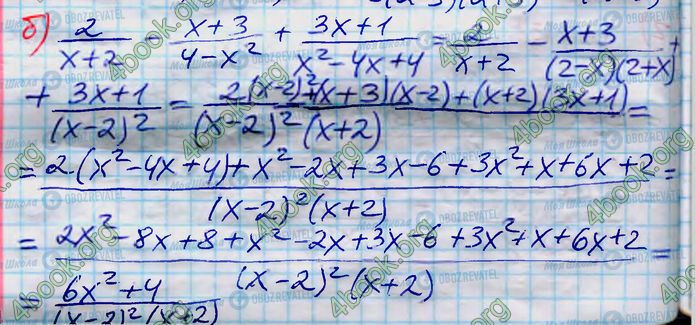 б) 2/(x+2) - (x+3)/(4-x²) + (3x+1)/(x²-4x+4) = 2/(x+2) - (x+3)/((2-x)(2+x)) +
+ (3x+1)/(x-2)² = (2(x-2)²+(x+3)(x-2)+(x+2)(3x+1))/((x-2)²(x+2)) =
= (2(x²-4x+4)+x²-2x+3x-6+3x²+x+6x+2)/((x-2)²(x+2)) =
= (2x²-8x+8+x²-2x+3x-6+3x²+x+6x+2)/((x-2)²(x+2)) =
= (6x²+4)/((x-2)²(x+2))
4book.org
Моя Школа
OBOZREVATEL